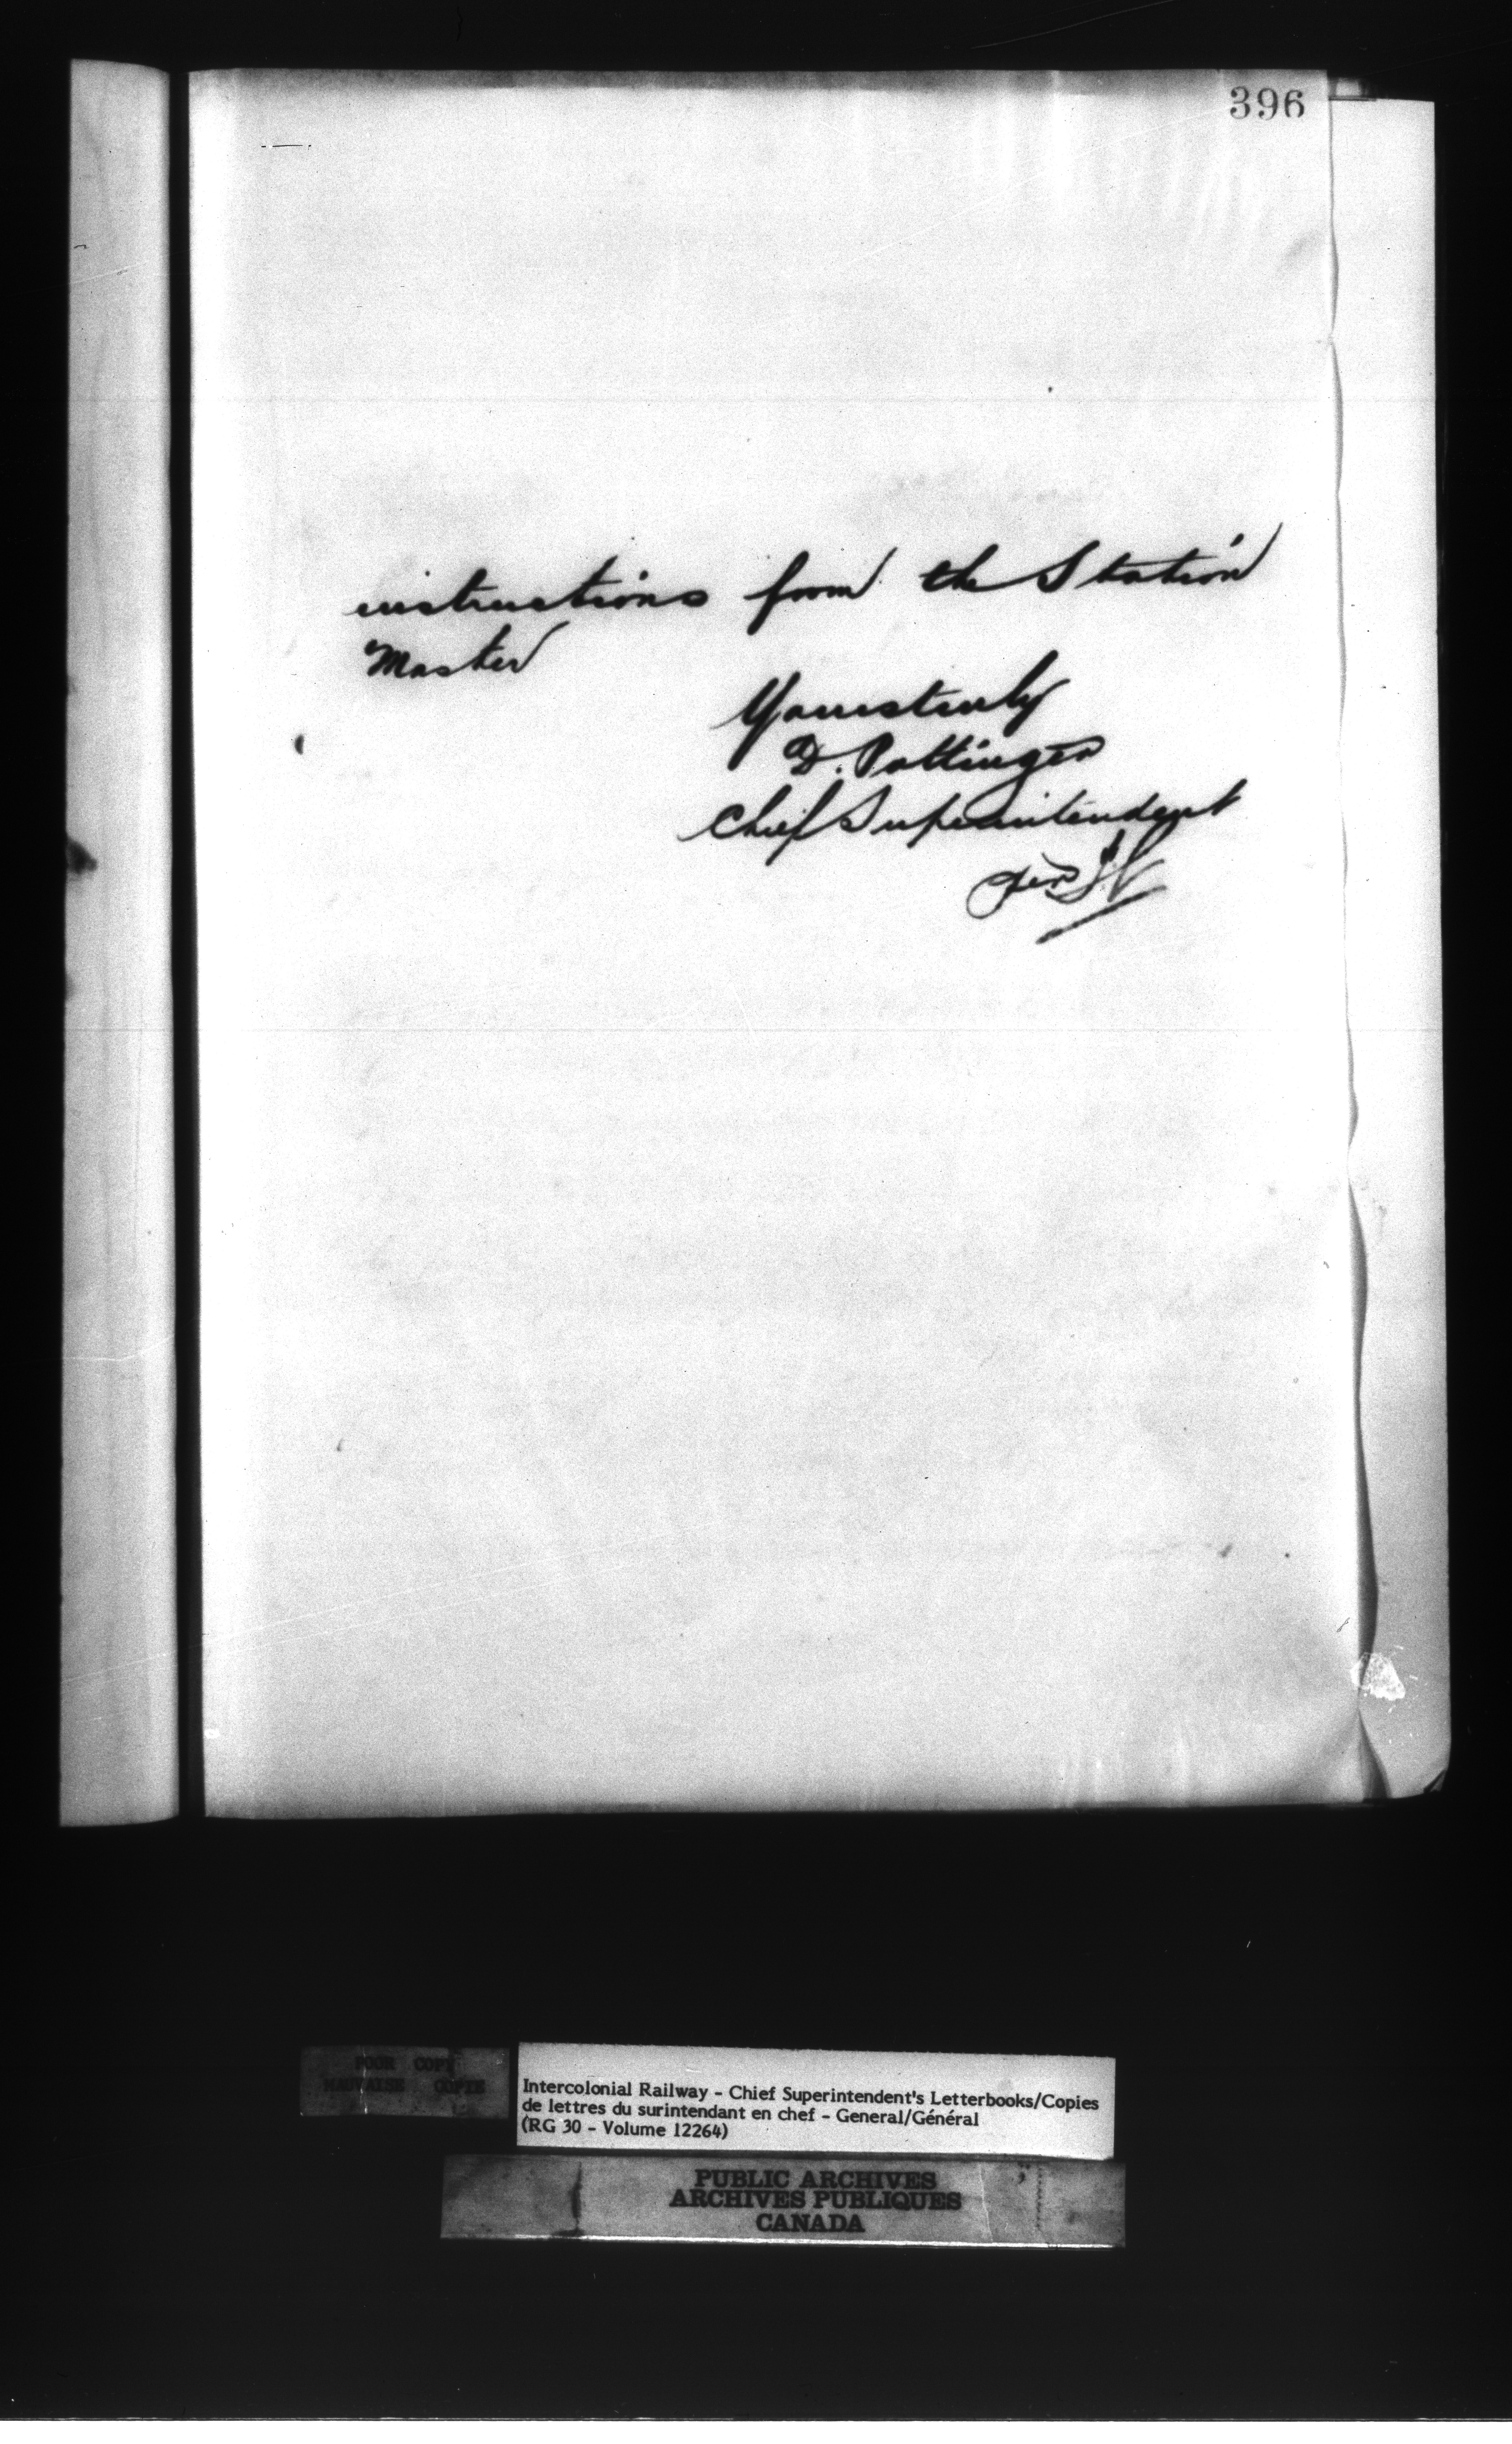 396
instructions from the Station
Master
Yours truly
D. Pottinger
Chief Superintendent
per
POOR COPY
MAUVAISE COPIE
Intercolonial Railway - Chief Superintendent's Letterbooks/Copies
de lettres du surintendant en chef - General/Général
(RG 30 - Volume 12264)
PUBLIC ARCHIVES
ARCHIVES PUBLIQUES
CANADA